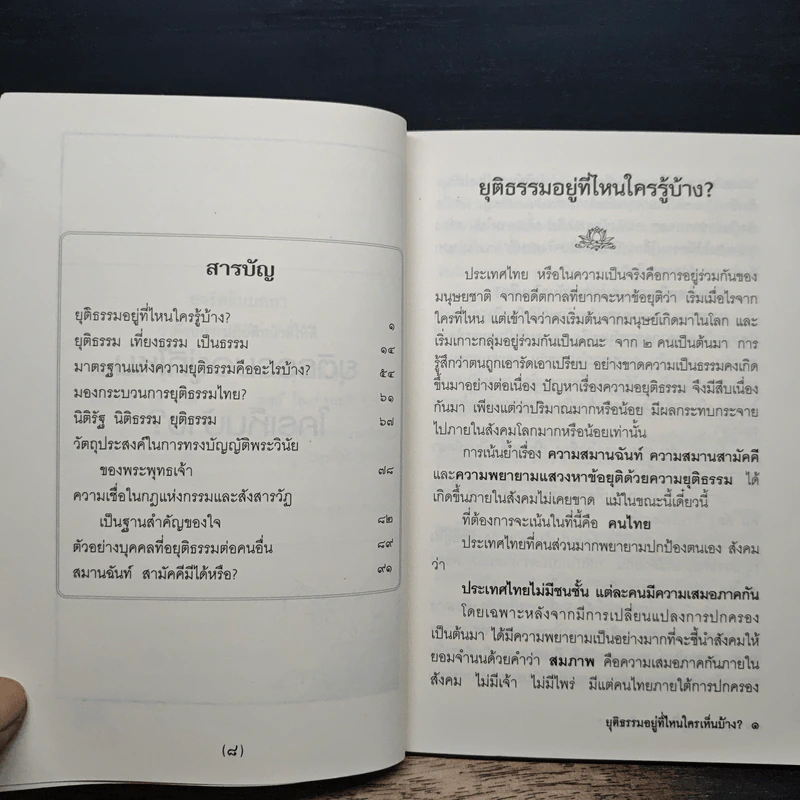 สารบัญ
ยุติธรรมอยู่ที่ไหนใครรู้บ้าง? ๑
ยุติธรรม เที่ยงธรรม เป็นธรรม ๑๔
มาตรฐานแห่งความยุติธรรมคืออะไรบ้าง? ๕๔
มองกระบวนการยุติธรรมไทย? ๖๑
นิติรัฐ นิติธรรม ยุติธรรม ๖๗
วัตถุประสงค์ในการทรงบัญญัติพระวินัย
ของพระพุทธเจ้า ๗๘
ความเชื่อในกฎแห่งกรรมและสังสารวัฏ
เป็นฐานสำคัญของใจ ๘๒
ตัวอย่างบุคคลที่อยุติธรรมต่อคนอื่น ๘๙
สมานฉันท์ สามัคคีมีได้หรือ? ๙๑
(๘)
ยุติธรรมอยู่ที่ไหนใครรู้บ้าง?
ประเทศไทย หรือในความเป็นจริงคือการอยู่ร่วมกันของ
มนุษยชาติ จากอดีตกาลที่ยากจะหาข้อยุติว่า เริ่มเมื่อไรจาก
ใครที่ไหน แต่เข้าใจว่าคงเริ่มต้นจากมนุษย์เกิดมาในโลก และ
เริ่มเกาะกลุ่มอยู่ร่วมกันเป็นคณะ จาก ๒ คนเป็นต้นมา การ
รู้สึกว่าตนถูกเอารัดเอาเปรียบ อย่างขาดความเป็นธรรมคงเกิด
ขึ้นมาอย่างต่อเนื่อง ปัญหาเรื่องความอยุติธรรม จึงมีสืบเนื่อง
กันมา เพียงแต่ว่าปริมาณมากหรือน้อย มีผลกระทบกระจาย
ไปภายในสังคมโลกมากหรือน้อยเท่านั้น
การเน้นย้ำเรื่อง ความสมานฉันท์ ความสมานสามัคคี
และความพยายามแสวงหาข้อยุติด้วยความยุติธรรม ได้
เกิดขึ้นภายในสังคมไม่เคยขาด แม้ในขณะนี้เดี๋ยวนี้
ที่ต้องการจะเน้นในที่นี้คือ คนไทย
ประเทศไทยที่คนส่วนมากพยายามปกป้องตนเอง สังคม
ว่า
ประเทศไทยไม่มีชนชั้น แต่ละคนมีความเสมอภาคกัน
โดยเฉพาะหลังจากมีการเปลี่ยนแปลงการปกครอง
เป็นต้นมา ได้มีความพยายามเป็นอย่างมากที่จะชี้นำสังคมให้
ยอมจำนนด้วยคำว่า สมภาพ คือความเสมอภาคกันภายใน
สังคม ไม่มีเจ้า ไม่มีไพร่ มีแต่คนไทยภายใต้การปกครอง
ยุติธรรมอยู่ที่ไหนใครเห็นบ้าง? ๑